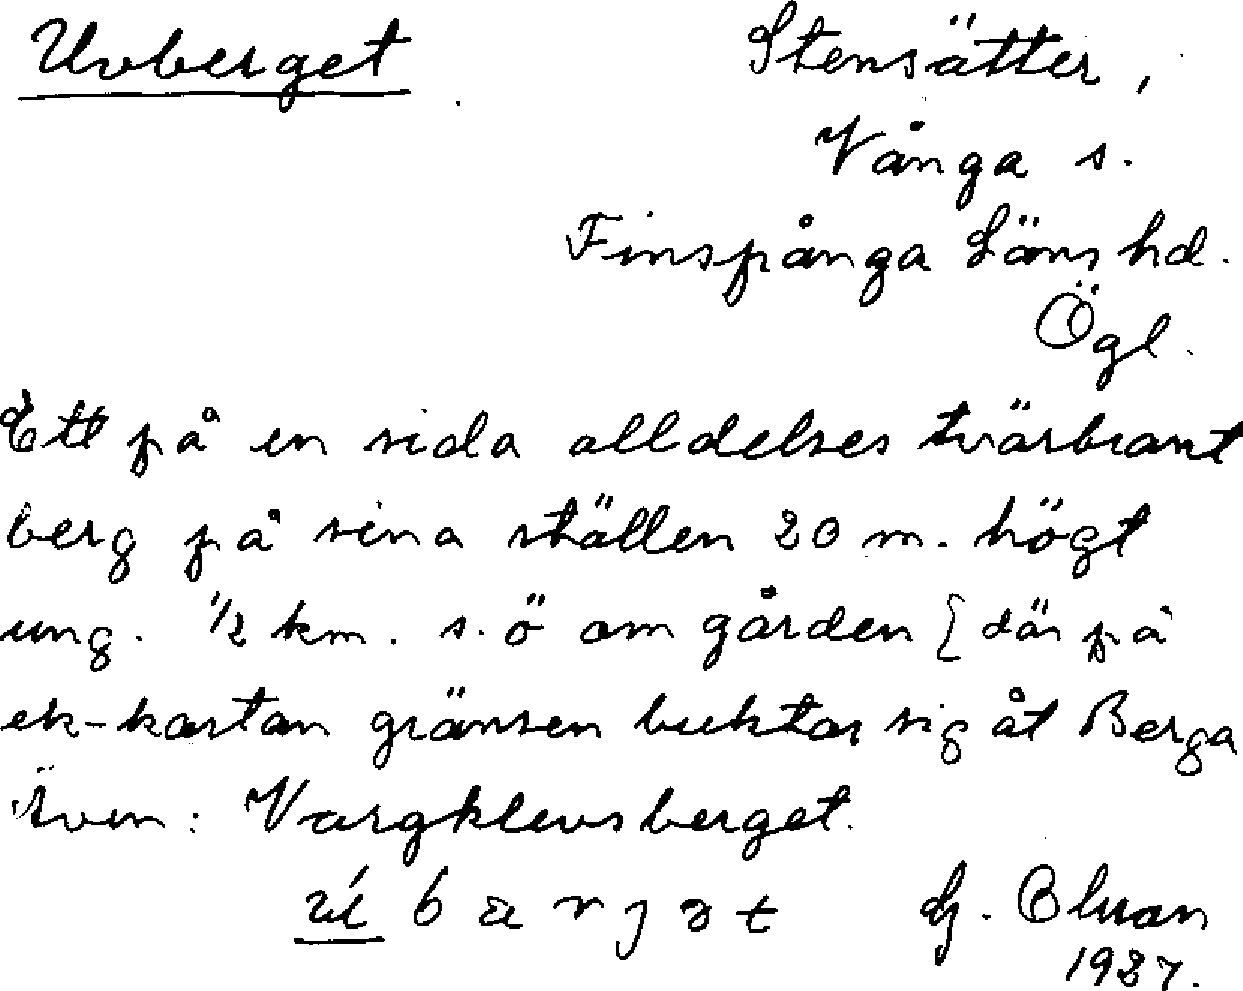 Uvberget
Stensätter,
Vånga s.
Finspånga Läns hd.
Ögl.
Ett på en sida alldeles tvärbrant
berg på sina ställen 20 m. högt
ung. 1/2 km. s.ö om gården [där på
ek-kartan gränsen buktar sig åt Berga
Även: Vargklevsberget.
G.
1937.